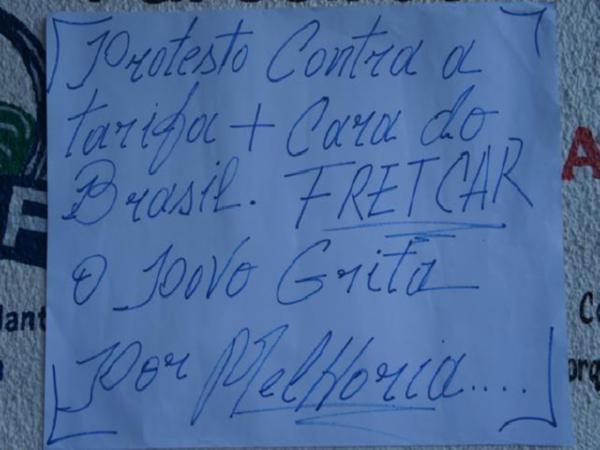 Protesto Contra a
tarifa + Cara do
Brasil. FRETCAR
O Povo Grita
Por MelHoria....